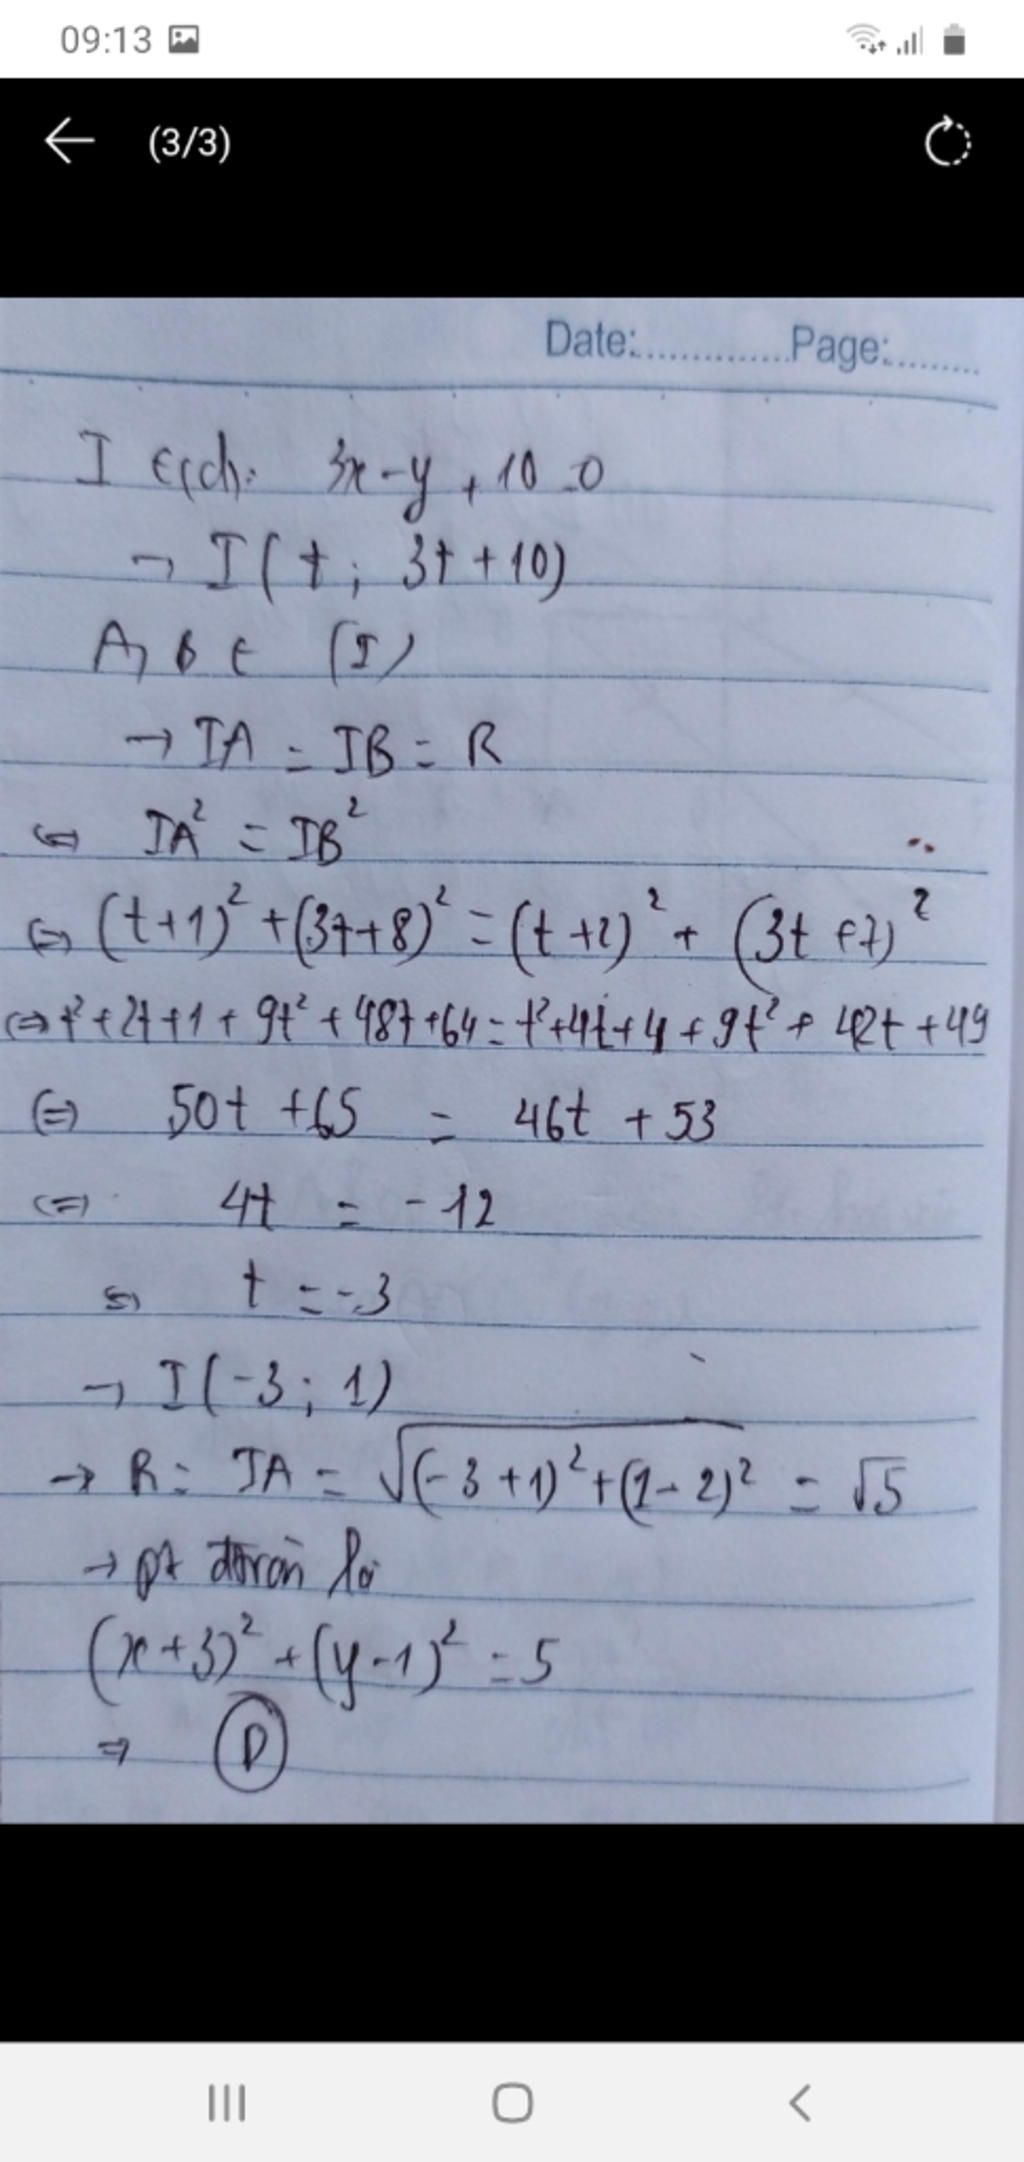 09:13
(3/3)
Date:..............Page:.........
I ∈(d): 3x-y+10=0
→ I(t; 3t+10)
A, B ∈ (I)
→ IA = IB = R
⇔ IA² = IB²
⇔ (t+1)² + (3t+8)² = (t+2)² + (3t+7)²
⇔ t²+2t+1+9t²+48t+64=t²+4t+4+9t²+42t+49
⇔ 50t+65 = 46t+53
⇔ 4t = -12
⇔ t = -3
→ I(-3; 1)
→ R= IA = √(-3+1)²+(1-2)² = √5
→ pt đtròn là
(x+3)²+(y-1)²=5
⇒ D